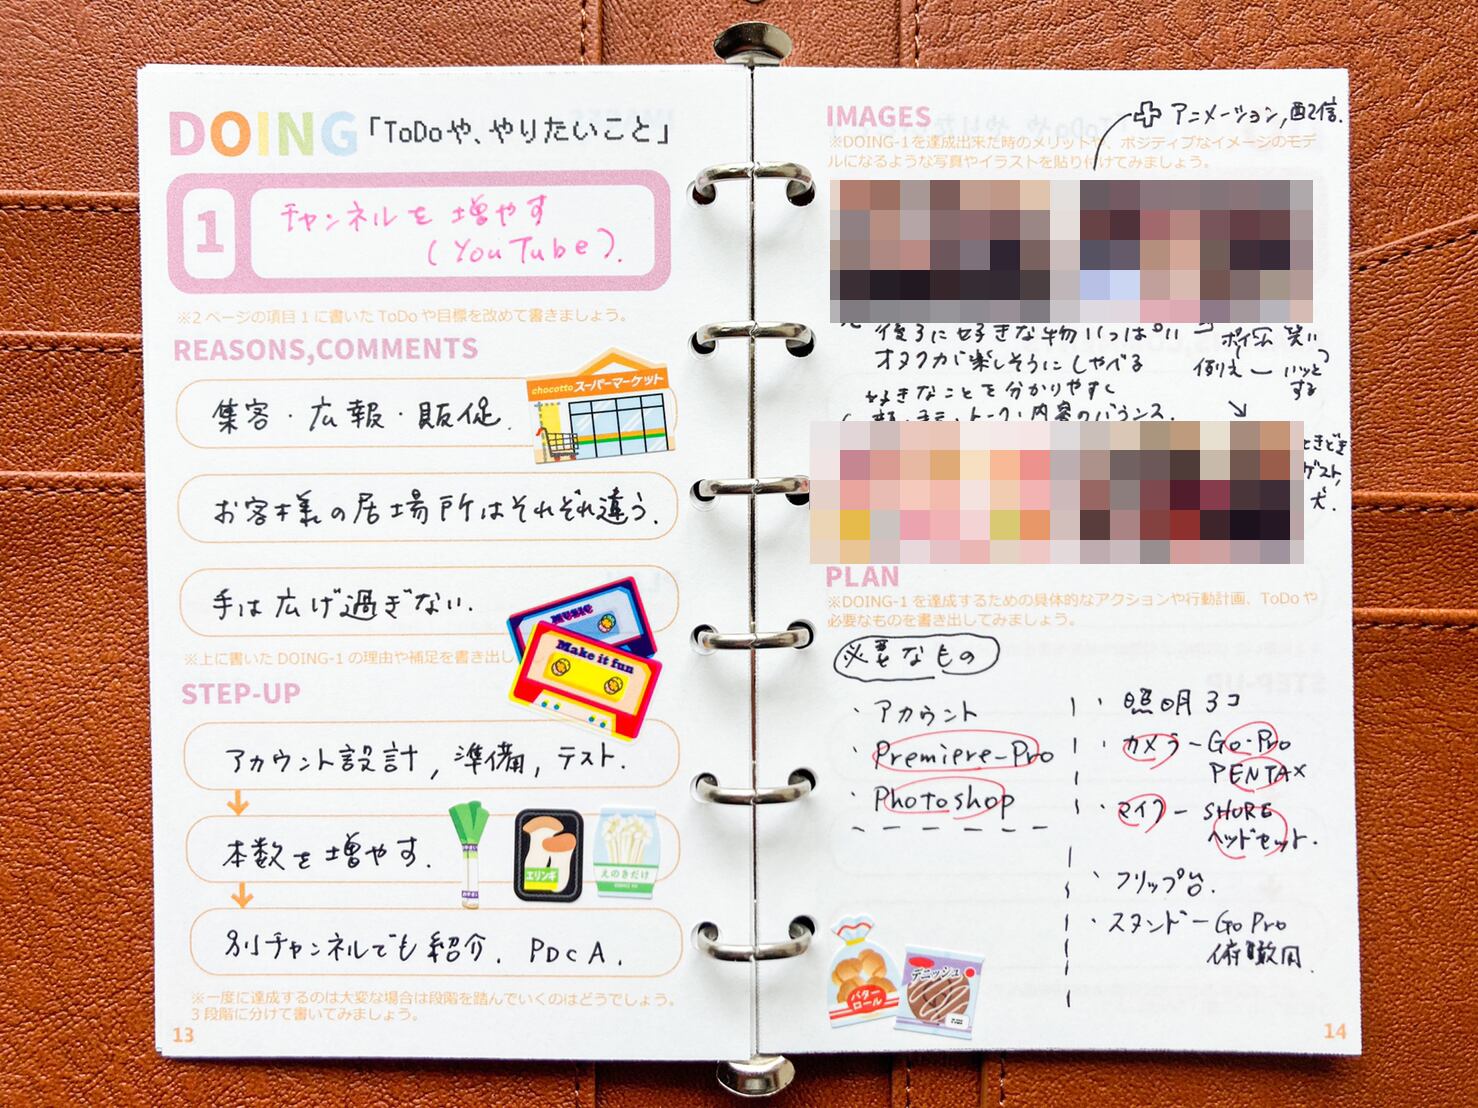 DOING「ToDoや、やりたいこと」
1
チャンネルを増やす
(YouTube).
※2ページの項目1に書いたToDoや目標を改めて書きましょう。
REASONS,COMMENTS
集客・広報・販促.
chocotto スーパーマーケット
お客様の居場所はそれぞれ違う.
手は広げ過ぎない.
Music
Make it fun
※上に書いたDOING-1の理由や補足を書き出し
STEP-UP
アカウント設計, 準備, テスト.
本数を増やす.
エリンギ
えのきだけ
別チャンネルでも紹介. PDCA.
※一度に達成するのは大変な場合は段階を踏んでいくのはどうでしょう。
3段階に分けて書いてみましょう。
13
IMAGES
アニメーション, 配信.
※DOING-1を達成出来た時のメリットや、ポジティブなイメージのモデ
ルになるような写真やイラストを貼り付けてみましょう。
後ろに好きな物いっぱい
オタクが楽しそうにしゃべる
好きなことを分かりやすく
トーク・内容のバランス.
笑い
例え
する
ときどき
ゲスト,
犬.
PLAN
※DOING-1を達成するための具体的なアクションや行動計画、ToDoや
必要なものを書き出してみましょう。
必要なもの
・アカウント
・Premiere-Pro
・Photoshop
・照明3コ
・カメラ-Go-Pro
PENTAX
・マイク-SHURE
ヘッドセット.
・フリップ台.
・スタンド-Go Pro
俯瞰用.
バター
ロール
デニッシュ
14